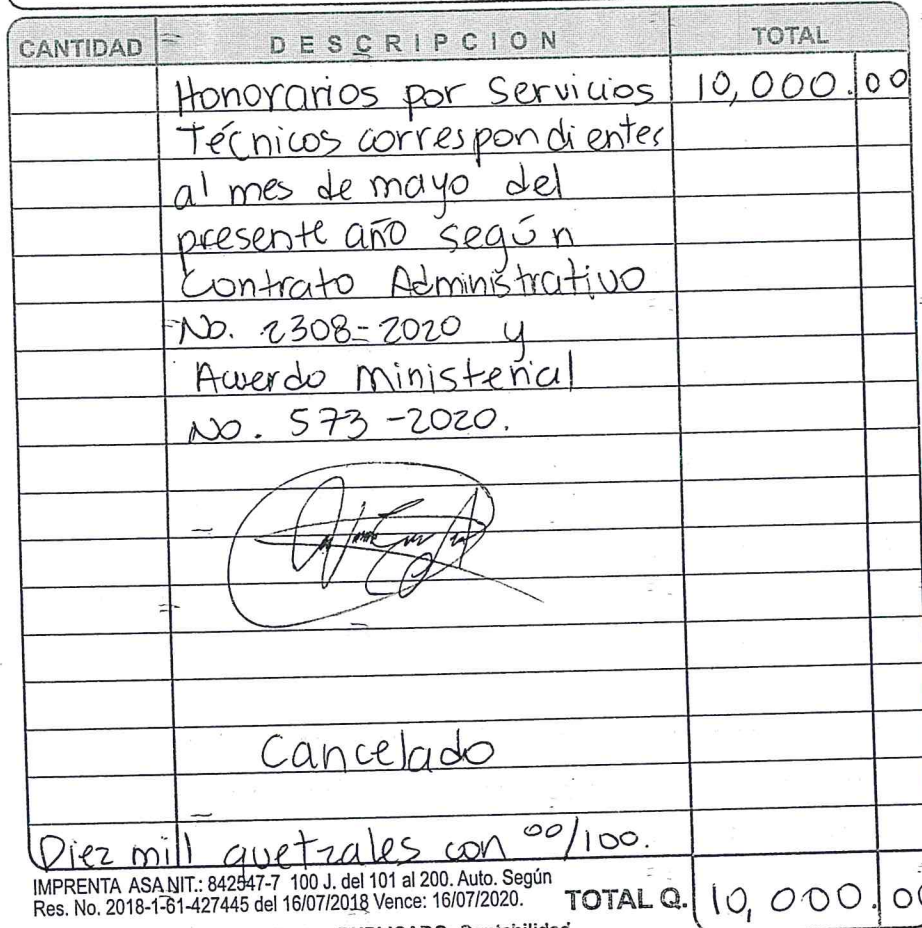 CANTIDAD DESCRIPCION TOTAL
Honorarios por Servicios 10,000.00
Técnicos correspondientes
al mes de mayo del
presente año según
Contrato Administrativo
No. 2308-2020 y
Acuerdo Ministerial
No. 573-2020.
Cancelado
Diez mil quetzales con 00/100.
IMPRENTA ASA NIT.: 842547-7 100 J. del 101 al 200. Auto. Según
Res. No. 2018-1-61-427445 del 16/07/2018 Vence: 16/07/2020.
TOTAL Q. 10,000.00